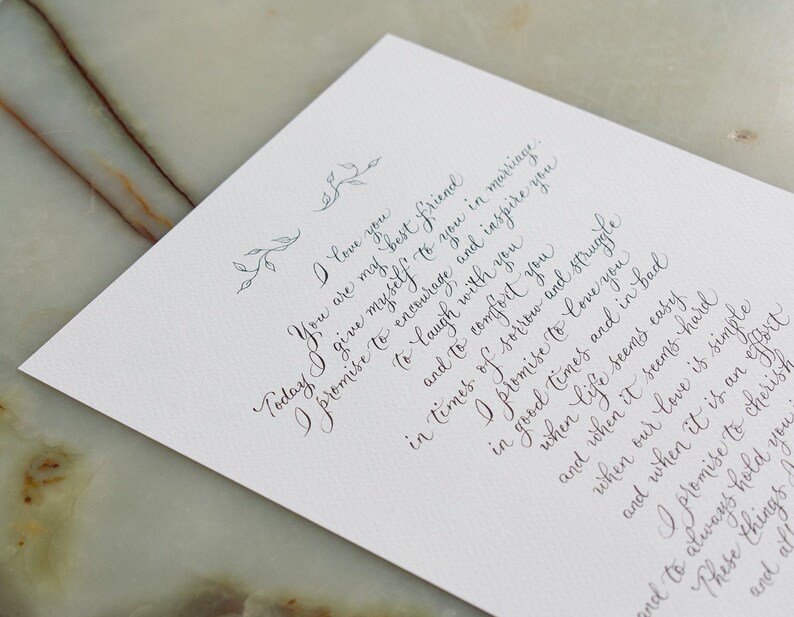 I love you
You are my best friend
Today I give myself to you in marriage.
I promise to encourage and inspire you
to laugh with you
and to comfort you
in times of sorrow and struggle
I promise to love you
in good times and in bad
when life seems easy
and when it seems hard
when our love is simple
and when it is an effort
I promise to cherish
and to always hold you
These things I
and all